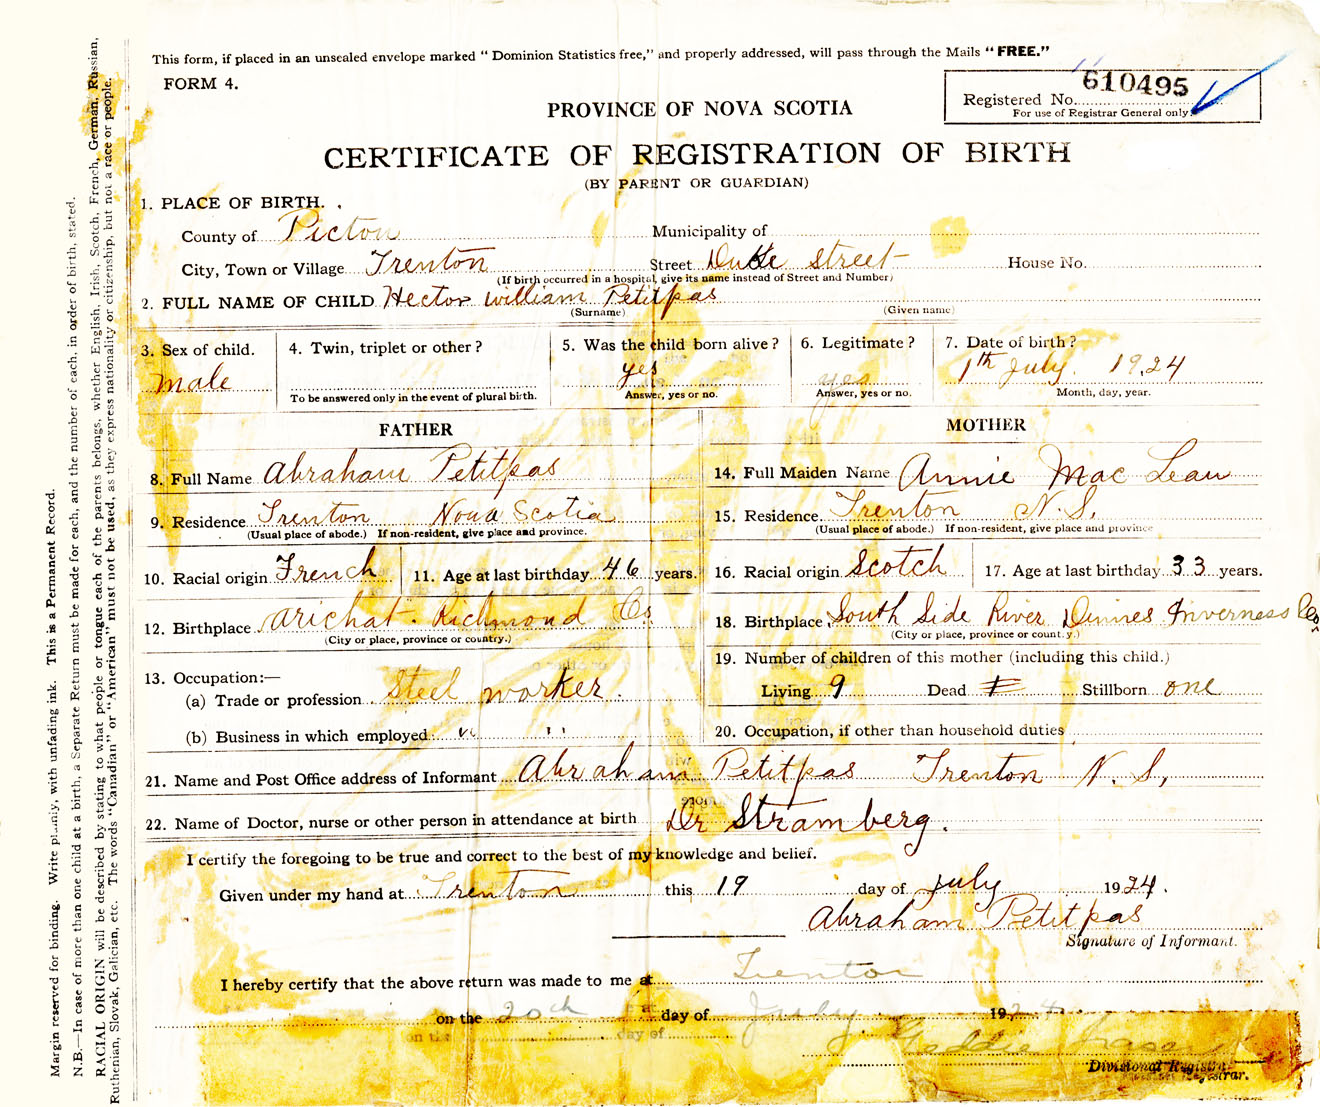 This form, if placed in an unsealed envelope marked "Dominion Statistics free," and properly addressed, will pass through the Mails "FREE."
FORM 4.
610495
Registered No.
For use of Registrar General only.
PROVINCE OF NOVA SCOTIA
CERTIFICATE OF REGISTRATION OF BIRTH
(BY PARENT OR GUARDIAN)
1. PLACE OF BIRTH.
County of Picton Municipality of
City, Town or Village Trenton Street Duke Street House No.
(If birth occurred in a hospital, give its name instead of Street and Number)
2. FULL NAME OF CHILD Hector William Petitpas
(Surname) (Given name)
3. Sex of child. 4. Twin, triplet or other? 5. Was the child born alive? 6. Legitimate? 7. Date of birth?
male yes yes 1th July 1924
To be answered only in the event of plural birth. Answer, yes or no. Answer, yes or no. Month, day, year.
FATHER MOTHER
8. Full Name Abraham Petitpas 14. Full Maiden Name Annie Mac Lean
9. Residence Trenton Nova Scotia 15. Residence Trenton N.S.
(Usual place of abode.) If non-resident, give place and province. (Usual place of abode.) If non-resident, give place and province
10. Racial origin French 11. Age at last birthday 46 years. 16. Racial origin Scotch 17. Age at last birthday 33 years.
12. Birthplace Arichat. Richmond Co. 18. Birthplace South Side River Dinnes Inverness Co.
(City or place, province or country.) (City or place, province or country.)
19. Number of children of this mother (including this child.)
13. Occupation:—
(a) Trade or profession Steel worker. Living 9 Dead Stillborn one
(b) Business in which employed " " 20. Occupation, if other than household duties
21. Name and Post Office address of Informant Abraham Petitpas Trenton N. S,
22. Name of Doctor, nurse or other person in attendance at birth Dr Stramberg.
I certify the foregoing to be true and correct to the best of my knowledge and belief.
Given under my hand at Trenton this 19 day of July 1924.
Abraham Petitpas
Signature of Informant.
I hereby certify that the above return was made to me at Trenton
on the 20th day of July 1924
on the day of
Divisional Registrar.
Margin reserved for binding. Write plainly, with unfading ink. This is a Permanent Record.
N.B.—In case of more than one child at a birth, a Separate Return must be made for each, and the number of each, in order of birth, stated.
RACIAL ORIGIN will be described by stating to what people or tongue each of the parents belongs, whether English, Irish, Scotch, French, German, Russian,
Ruthenian, Slovak, Galician, etc. The words "Canadian" or "American" must not be used, as they express nationality or citizenship, but not a race or people.